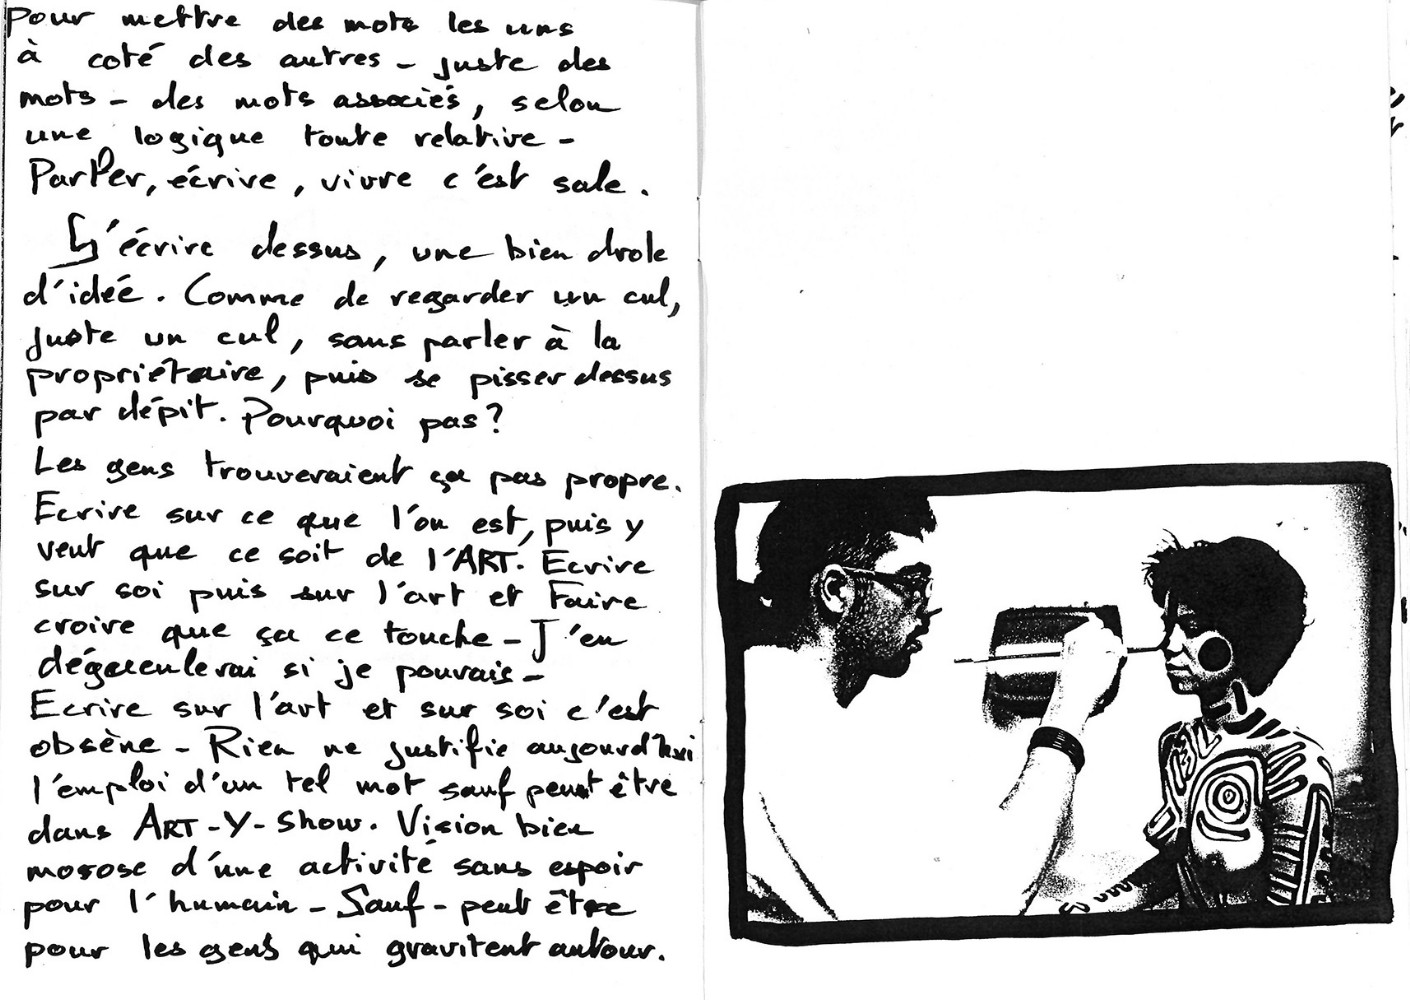 pour mettre des mots les uns
à coté des autres - juste des
mots - des mots associés, selon
une logique toute relative -
Parler, écrire, vivre c'est sale.
S'écrire dessus, une bien drole
d'idée. Comme de regarder un cul,
juste un cul, sans parler à la
propriétaire, puis se pisser dessus
par dépit. Pourquoi pas?
Les gens trouveraient ça pas propre.
Ecrire sur ce que l'on est, puis y
veut que ce soit de l'ART. Ecrire
sur soi puis sur l'art et Faire
croire que ça ce touche - J'en
dégueulerai si je pouvais -
Ecrire sur l'art et sur soi c'est
obsène - Rien ne justifie aujourd'hui
l'emploi d'un tel mot sauf peut être
dans ART-Y-Show. Vision bien
morose d'une activité sans espoir
pour l'humain - Sauf - peut être
pour les gens qui gravitent autour.